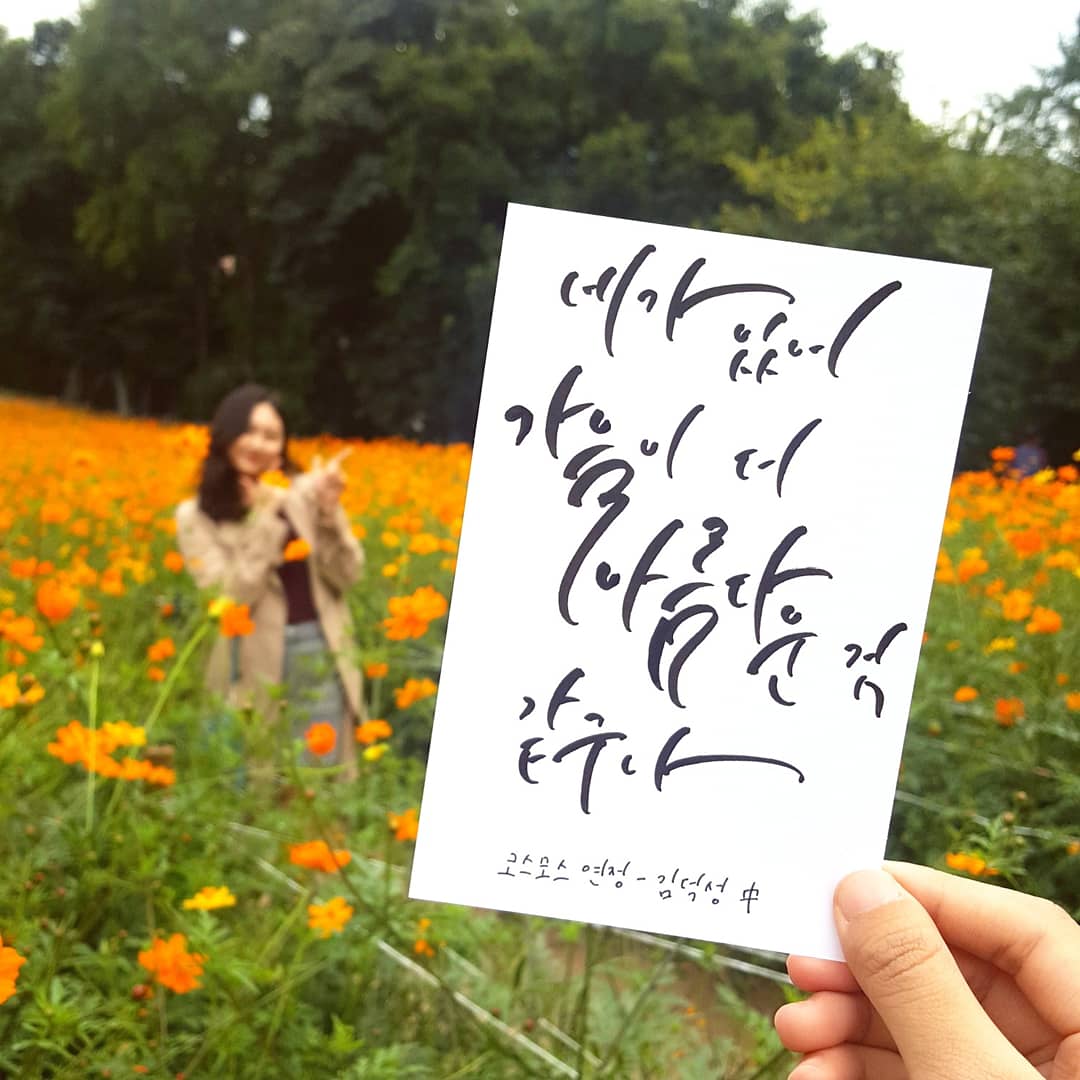 네가 있어
가을이 더
아름다운 것
같구나
코스모스 연정 - 김덕성 中